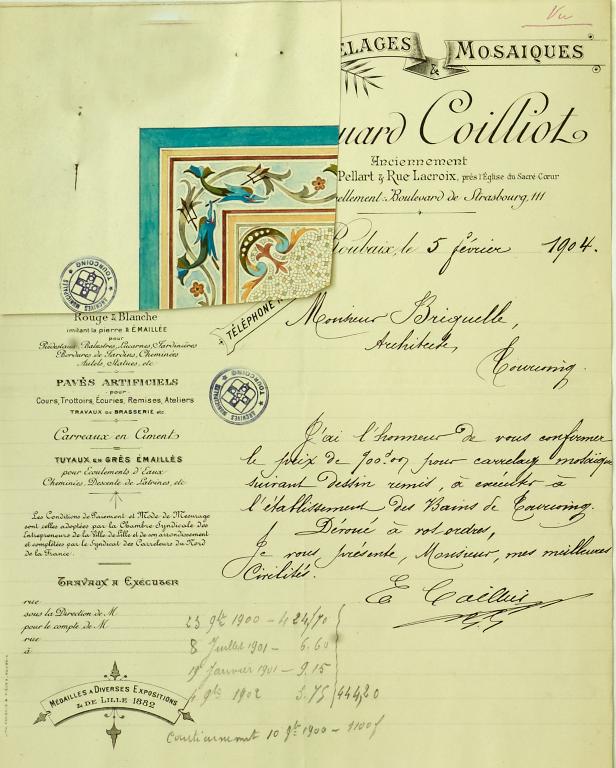 Vu
ELAGES & MOSAIQUES
uard Coilliot
Anciennement
Pellart & Rue Lacroix, près l'Église du Sacré Cœur
ellement: Boulevard de Strasbourg, 111
Roubaix, le 5 février 1904.
TÉLÉPHONE
Monsieur Briquelle,
Architecte,
Tourcoing.
ARCHIVES MUNICIPALES TOURCOING
Rouge & Blanche
imitant la pierre & ÉMAILLÉE
pour
Piédestaux, Balustres, Lucarnes, Jardinières
Bordures de Jardins, Cheminées
Autels, Statues, etc
PAVÉS ARTIFICIELS
pour
Cours, Trottoirs, Écuries, Remises, Ateliers
TRAVAUX DE BRASSERIE etc
Carreaux en Ciment
TUYAUX EN GRÈS ÉMAILLÉS
pour Écoulements d'Eaux
Cheminées, Descente de Latrines, etc
Les Conditions de Paiement et Mode de Mesurage
sont celles adoptées par la Chambre Syndicale des
Entrepreneurs de la Ville de Lille et de son arrondissement
et complétées par le Syndicat des Carreleurs du Nord
de la France.
TRAVAUX A EXÉCUTER
rue
sous la Direction de M
pour le compte de M
rue
à
MÉDAILLES A DIVERSES EXPOSITIONS
& DE LILLE 1882
ARCHIVES MUNICIPALES TOURCOING
J'ai l'honneur de vous confirmer
le prix de 900 pour carrelage mosaïque
suivant dessin remis, à exécuter à
l'établissement des Bains de Tourcoing.
Dévoué à vos ordres,
Je vous présente, Monsieur, mes meilleures
Civilités.
E Coilliot
23 9bre 1900 - 424/70
8 Juillet 1901 - 6.60
19 Janvier 1901 - 9.15
4 9bre 1902 3.75 444,20
Cautionnement 10 9bre 1900 - 1100f